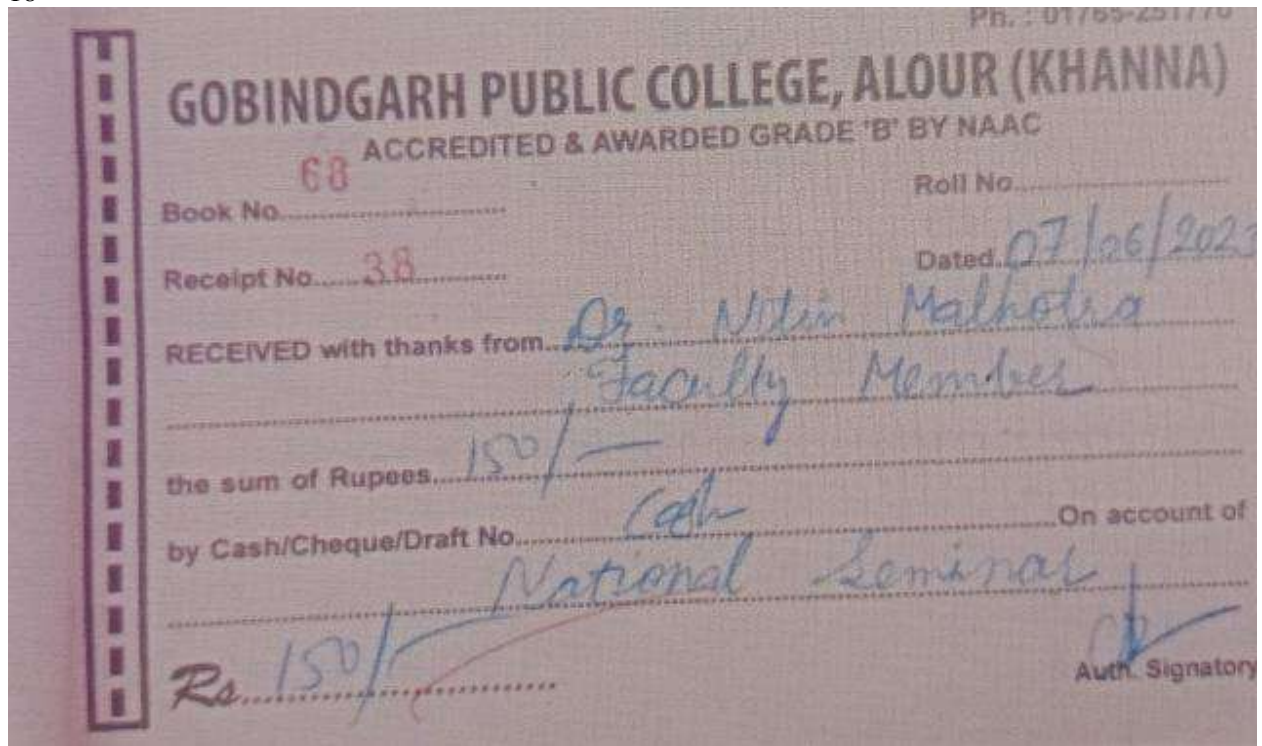 Ph. : 01765-251770
GOBINDGARH PUBLIC COLLEGE, ALOUR (KHANNA)
ACCREDITED & AWARDED GRADE 'B' BY NAAC
Book No. 68 Roll No.
Receipt No. 38 Dated. 07/06/2023
RECEIVED with thanks from Dr. Nitin Malhotra
Faculty Member
the sum of Rupees 150/-
by Cash/Cheque/Draft No. Cash On account of
National Seminar
Rs. 150/-
Auth. Signatory